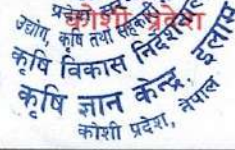 कोशी प्रदेश
प्रदेश
उद्योग, कृषि तथा सहकारी
कृषि विकास
कृषि ज्ञान केन्द्र, इलाम
कोशी प्रदेश, नेपाल